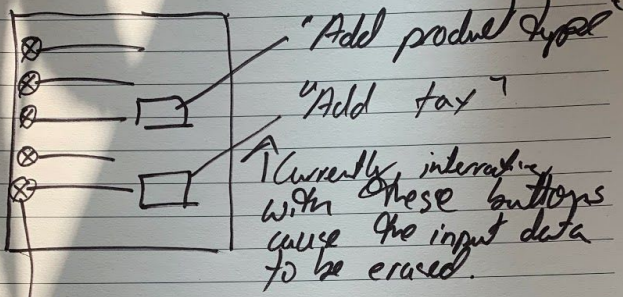 "Add product type"
"Add tax"
Currently, interacting
with these buttons
cause the input data
to be erased.